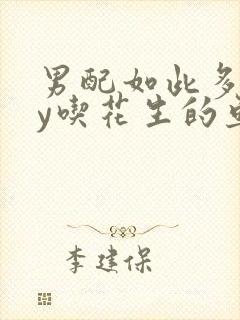 男配如此多
y喫花生的
李建保